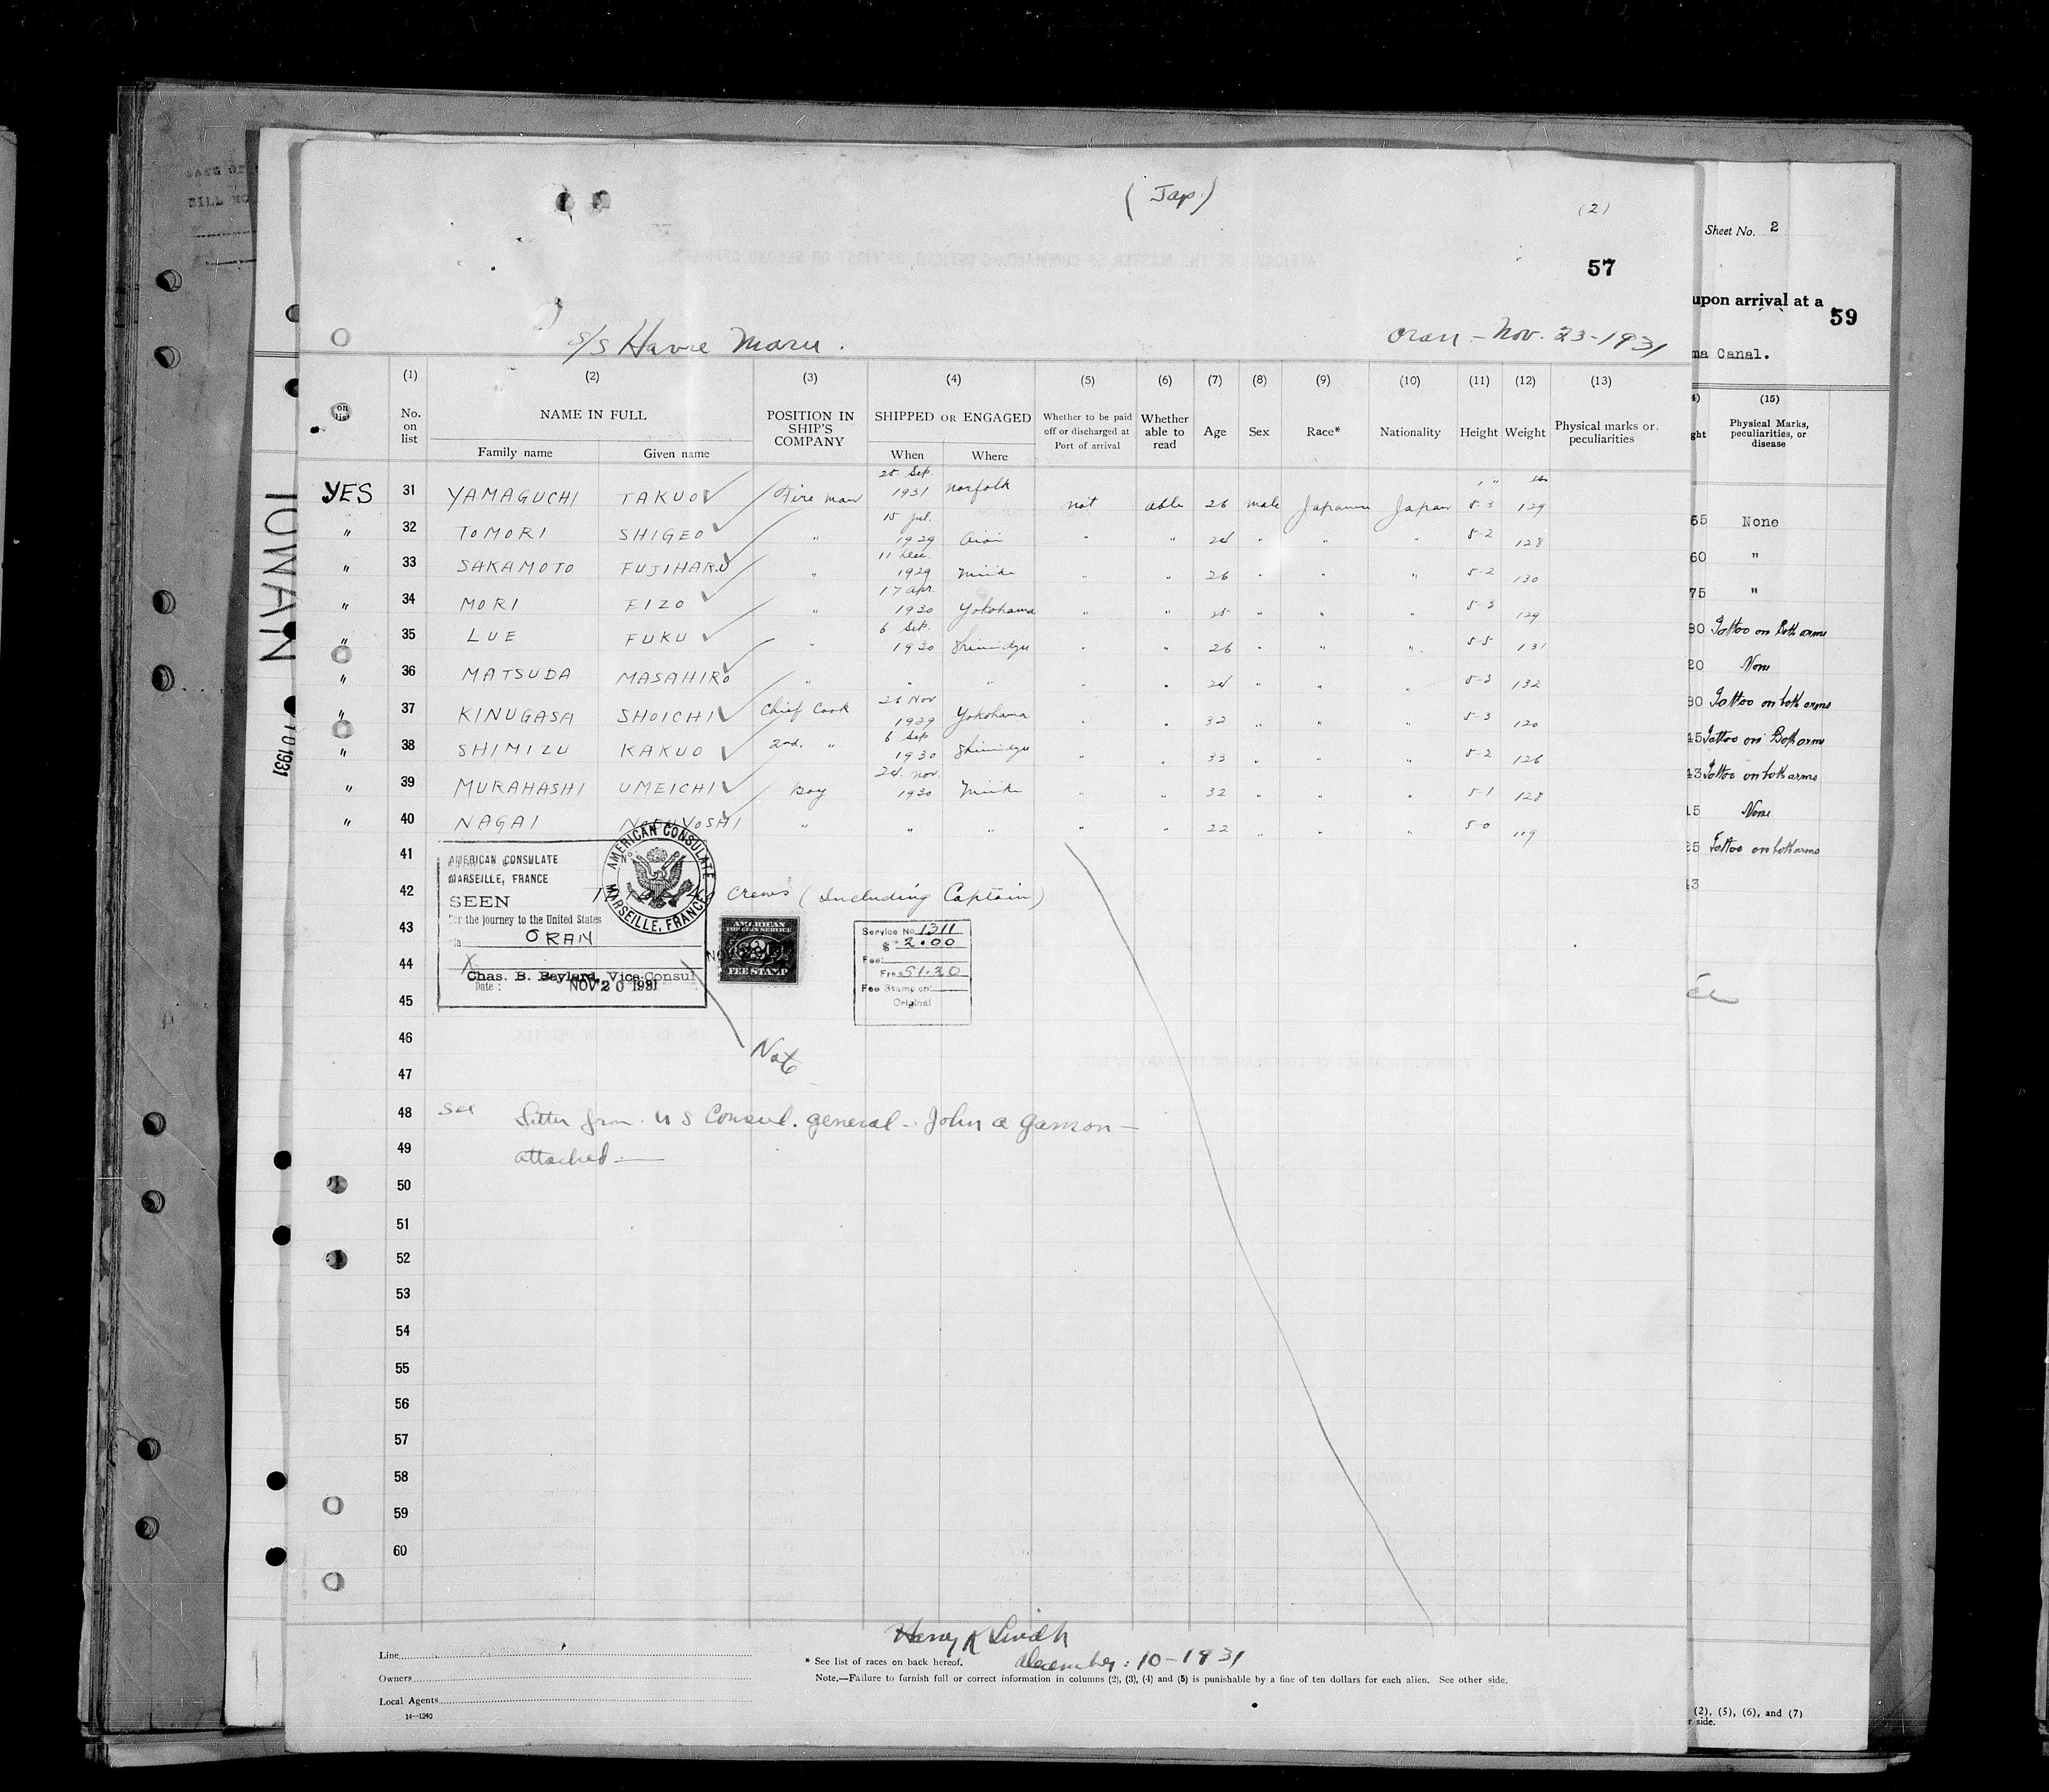 ( Jap. )
(2)
57
S/S Havre Maru.
Oran - Nov. 23 - 1931
(1) (2) (3) (4) (5) (6) (7) (8) (9) (10) (11) (12) (13)
on list
No. on list
NAME IN FULL
Family name Given name
POSITION IN SHIP'S COMPANY
SHIPPED OR ENGAGED
When Where
Whether to be paid off or discharged at Port of arrival
Whether able to read
Age Sex Race* Nationality Height Weight
Physical marks or peculiarities
YES 31 YAMAGUCHI TAKUO Fire man 25 Sep. 1931 Norfolk not able 26 male Japanese Japan 5-3 129
" 32 TOMORI SHIGEO " 15 Jul. 1929 " 24 " " " 5-2 128
" 33 SAKAMOTO FUJIHARU " 11 Dec. 1929 Miike " " 26 " " " 5-2 130
" 34 MORI EIZO " 17 Apr. 1930 Yokohama " " 25 " " " 5-3 129
" 35 LUE FUKU " 6 Sep. 1930 Shimidzu " " 26 " " " 5-5 131
" 36 MATSUDA MASAHIRO " " " " " 24 " " " 5-3 132
" 37 KINUGASA SHOICHI Chief Cook 26 Nov 1929 Yokohama " " 32 " " " 5-3 120
" 38 SHIMIZU KAKUO 2nd. " 6 Sep 1930 Shimidzu " " 33 " " " 5-2 126
" 39 MURAHASHI UMEICHI Boy 24. Nov. 1930 Miike " " 32 " " " 5-1 128
" 40 NAGAI NOBUYOSHI " " " " " 22 " " " 5-0 119
41
42
43
44
45
46
47
48
49
50
51
52
53
54
55
56
57
58
59
60
AMERICAN CONSULATE
MARSEILLE, FRANCE
SEEN
For the journey to the United States
via ORAN
Chas. B. Beylard, Vice-Consul
Date: NOV 20 1931
AMERICAN CONSULATE
MARSEILLE, FRANCE
crews (Including Captain)
AMERICAN
FOREIGN SERVICE
2
FEE STAMP
Service No. 1311
$ 2.00
Fee:
Frs 51.20
Fee Stamp on:
Original
Note
See Letter from U S Consul. general - John a Gamon -
attached -
Henry K
December: 10 - 1931
Line
Owners
Local Agents
14-1240
* See list of races on back hereof.
Note.—Failure to furnish full or correct information in columns (2), (3), (4) and (5) is punishable by a fine of ten dollars for each alien. See other side.
IOWAN
10 1931
Sheet No. 2
upon arrival at a
59
ma Canal.
(15)
Physical Marks, peculiarities, or disease
ght
65 None
60 "
75 "
80 Tattoo on Both arms
20 None
80 Tattoo on both arms
45 Tattoo on Both arms
43 Tattoo on both arms
15 None
25 Tattoo on both arms
43
(2), (5), (6), and (7)
r side.